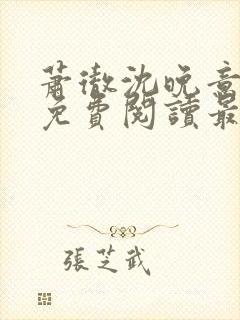 蕭徹沈晚意
免費閱讀最
張芝武